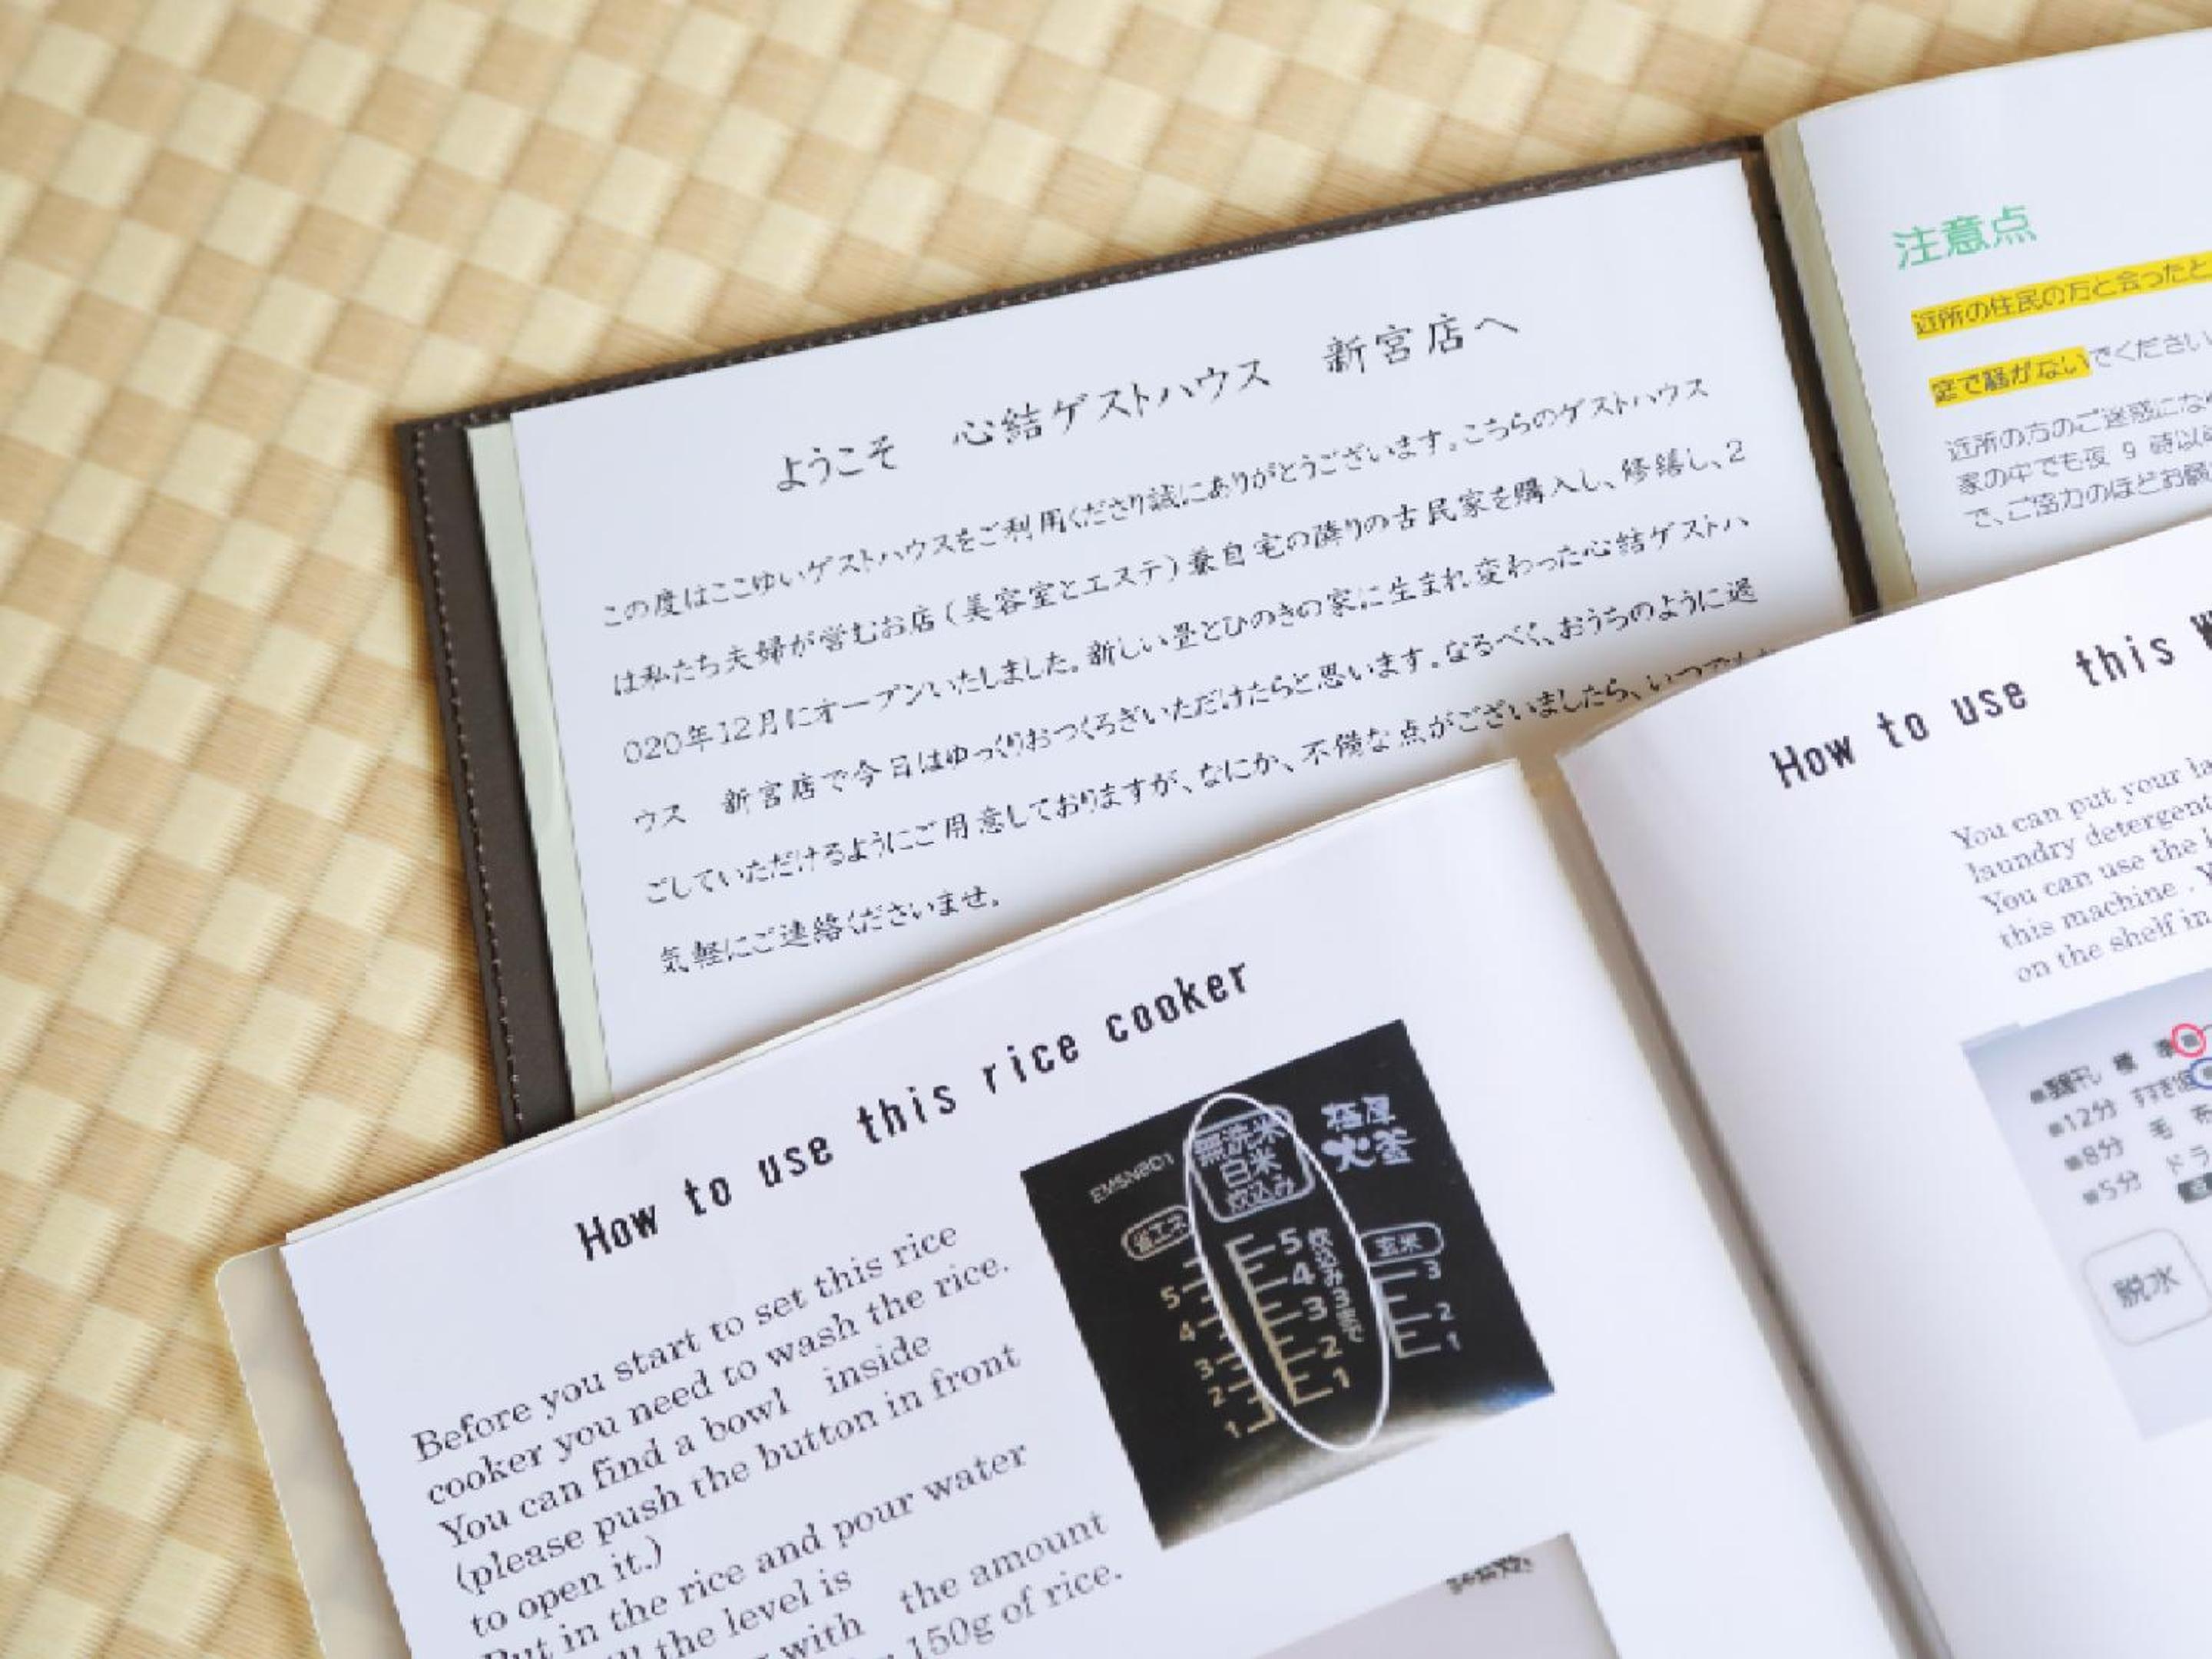 ようこそ　心結ゲストハウス　新宮店へ
この度はここゆいゲストハウスをご利用くださり誠にありがとうございます。こちらのゲストハウス
は私たち夫婦が営むお店（美容室とエステ）兼自宅の隣りの古民家を購入し、修繕し、2
020年12月にオープンいたしました。新しい畳とひのきの家に生まれ変わった心結ゲストハ
ウス　新宮店で今日はゆっくりおつくろぎいただけたらと思います。なるべく、おうちのように過
ごしていただけるようにご用意しておりますが、なにか、不備な点がございましたら、いつでも
気軽にご連絡くださいませ。
注意点
近所の住民の方と会ったと
窓で騒がないでください
近所の方のご迷惑にな
家の中でも夜 9 時以
で、ご協力のほどお願
How to use this rice cooker
Before you start to set this rice
cooker you need to wash the rice.
You can find a bowl inside
(please push the button in front
to open it.)
Put in the rice and pour water
the level is
with the amount
150g of rice.
極厚
火釜
無洗米
白米
炊込み
省エネ
玄米
5
4
3
2
1
5
4
3
2
1
3
2
1
How to use this
You can put your
laundry detergent
You can use the
this machine.
on the shelf in
標準
12分 すすぎ
8分 毛布
5分 ドラ
脱水